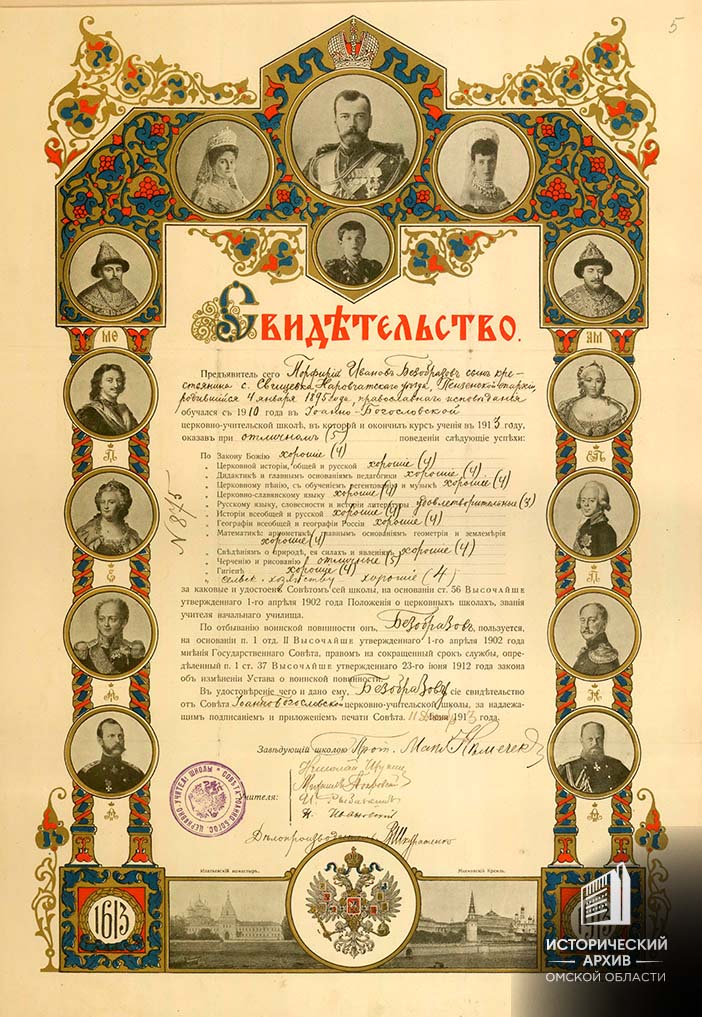 5
Свидѣтельство.
МѲ
АМ
Предъявитель сего Порфирій Ивановъ Безобразовъ сынъ кре-
стьянина с. Свищевка Наровчатскаго уѣзда, Пензенской епархіи,
родившійся 4 января 1895 года, православнаго исповѣданія
обучался съ 1910 года въ Іоанно-Богословской
церковно-учительской школѣ, въ которой и окончилъ курсъ ученія въ 1913 году,
оказавъ при отличномъ (5) поведеніи слѣдующіе успѣхи:
По Закону Божію хорошіе (4)
„ Церковной исторіи, общей и русской хорошіе (4)
„ Дидактикѣ и главнымъ основаніямъ педагогики хорошіе (4)
„ Церковному пѣнію, съ обученіемъ регентованію и музыкѣ хорошіе (4)
„ Церковно-славянскому языку хорошіе (4)
„ Русскому языку, словесности и исторіи литературы удовлетворительные (3)
„ Исторіи всеобщей и русской хорошіе (4)
„ Географіи всеобщей и географіи Россіи хорошіе (4)
Математикѣ: ариѳметикѣ, главнымъ основаніямъ геометріи и землемѣрія
хорошіе (4)
„ Свѣдѣніямъ о природѣ, ея силахъ и явленіяхъ хорошіе (4)
„ Черченію и рисованію отличные (5)
„ Гигіенѣ хорошіе (4)
„ сельск. хозяйству хорошіе (4)
№ 875
за каковые и удостоенъ Совѣтомъ сей школы, на основаніи ст. 56 Высочайше
утвержденнаго 1-го апрѣля 1902 года Положенія о церковныхъ школахъ, званія
учителя начальнаго училища.
По отбыванію воинской повинности онъ, Безобразовъ пользуется,
на основаніи п. 1 отд. II Высочайше утвержденнаго 1-го апрѣля 1902 года
мнѣнія Государственнаго Совѣта, правомъ на сокращенный срокъ службы, опре-
дѣленный п. 1 ст. 37 Высочайше утвержденнаго 23-го іюня 1912 года закона
объ измѣненіи Устава о воинской повинности.
Въ удостовѣреніе чего и дано ему, Безобразову сіе свидѣтельство
отъ Совѣта Іоанно-Богословской церковно-учительской школы, за надлежа-
щимъ подписаніемъ и приложеніемъ печати Совѣта. 11 1913 года.
Завѣдующій школою Прот.
Учителя:
Николай
И. Рыбавкинъ
Дѣлопроизводитель Шкуратенко
Ипатьевскій монастырь.
Московскій Кремль.
1613
1913
ИСТОРИЧЕСКИЙ
АРХИВ
ОМСКОЙ ОБЛАСТИ